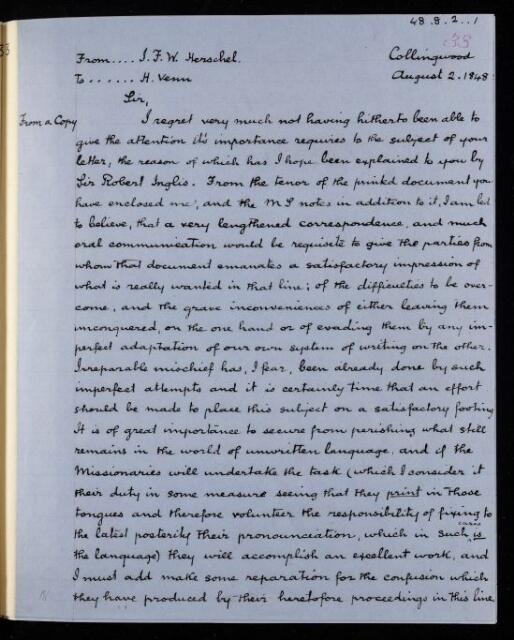 48.8.2..1
33
35
From.... J. F. W. Herschel.
Collingwood
To ...... H. Venn
August 2. 1848
Sir,
From a Copy
I regret very much not having hitherto been able to
give the attention it's importance requires to the subject of your
letter, the reason of which has I hope been explained to you by
Sir Robert Inglis. From the tenor of the printed document you
have enclosed me, and the MS notes in addition to it, I am led
to believe, that a very lengthened correspondence, and much
oral communication would be requisite to give the parties from
whom that document emanates a satisfactory impression of
what is really wanted in that line; of the difficulties to be over-
come, and the grave inconveniences of either leaving them
unconquered, on the one hand or of evading them by any im-
perfect adaptation of our own system of writing on the other.
Irreparable mischief has, I fear, been already done by such
imperfect attempts and it is certainly time that an effort
should be made to place this subject on a satisfactory footing
It is of great importance to secure from perishing what still
remains in the world of unwritten language, and if the
Missionaries will undertake the task (which I consider it
their duty in some measure seeing that they print in those
tongues and therefore volunteer the responsibility of fixing to
the latest posterity their pronounciation, which in such cases is
the language) they will accomplish an excellent work, and
I must add make some reparation for the confusion which
they have produced by their heretofore proceedings in this line